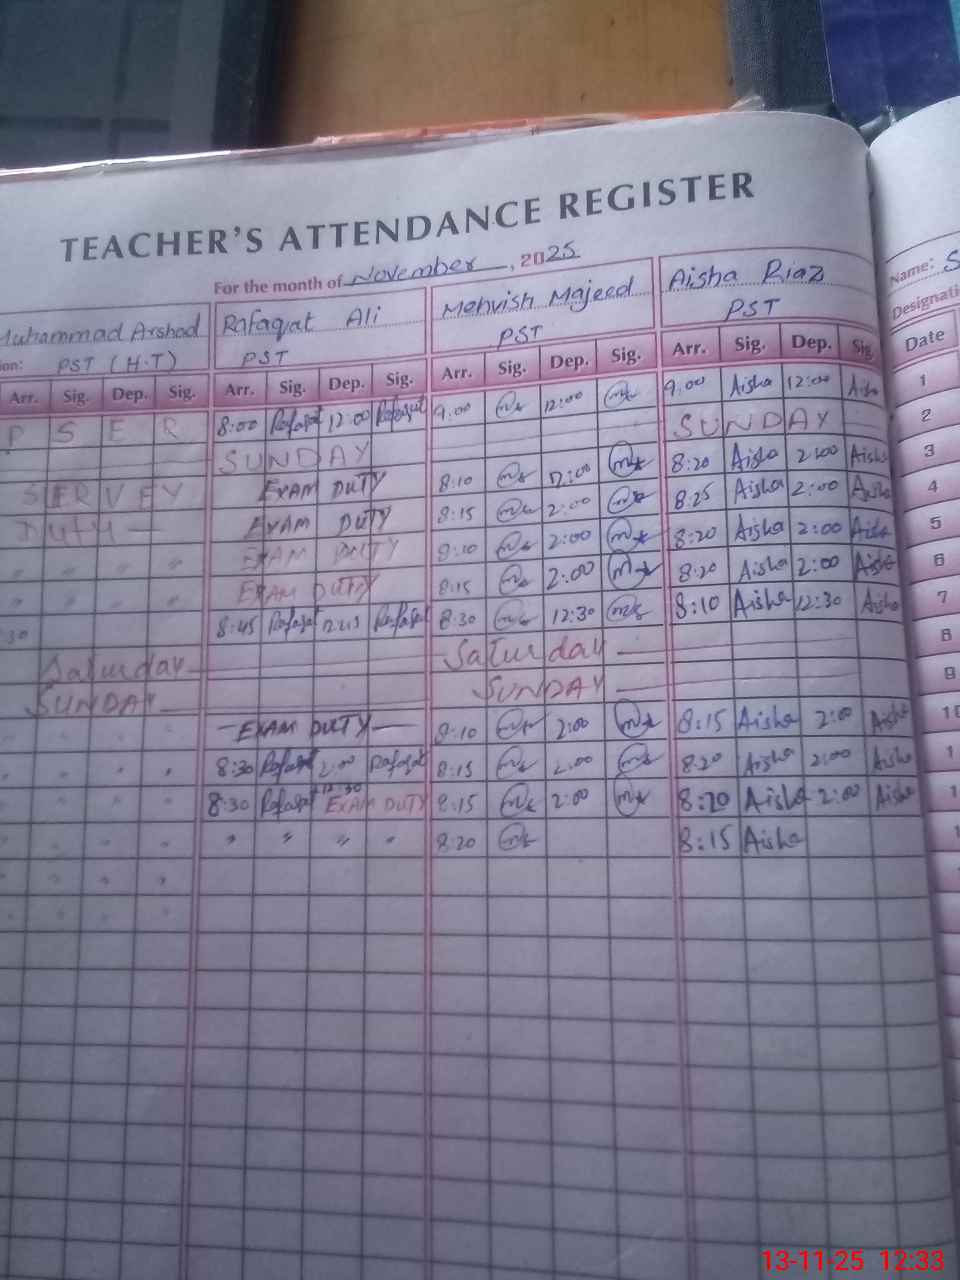 TEACHER'S ATTENDANCE REGISTER
For the month of November, 2025
Muhammad Arshad Rafaqat Ali Mehvish Majeed Aisha Riaz Name: S
ion: PST (H.T) PST PST PST Designati
Arr. Sig. Dep. Sig. Arr. Sig. Dep. Sig. Arr. Sig. Dep. Sig. Arr. Sig. Dep. Sig Date
P S E R 8:00 Rafaqat 12:00 Rafaqat 9.00 12:00 9.00 Aisha 12:00 Aisha 1
SUNDAY SUNDAY 2
SERVEY EXAM DUTY 8:10 12:00 8:20 Aisha 2:00 Aisha 3
Duty EXAM DUTY 8:15 2:00 8:25 Aisha 2:00 Aisha 4
" " " " EXAM DUTY 8:10 2:00 8:20 Aisha 2:00 Aisha 5
" " " " EXAM DUTY 8:15 2:00 8:20 Aisha 2:00 Aisha 6
:30 8:45 Rafaqat 12:15 Rafaqat 8:30 12:30 8:10 Aisha 12:30 Aisha 7
Saturday Saturday 8
SUNDAY SUNDAY 9
" " " " EXAM DUTY 8:10 2:00 8:15 Aisha 2:00 Aisha 10
" " " " 8:30 Rafaqat 2:00 Rafaqat 8:15 2:00 8:20 Aisha 2:00 Aisha 1
" " " " 8:30 Rafaqat 12:30 EXAM DUTY 8:15 2:00 8:20 Aisha 2:00 Aisha 1
" " " " " " " " 8:20 8:15 Aisha 1
" " " "
" " " "
13-11-25 12:33